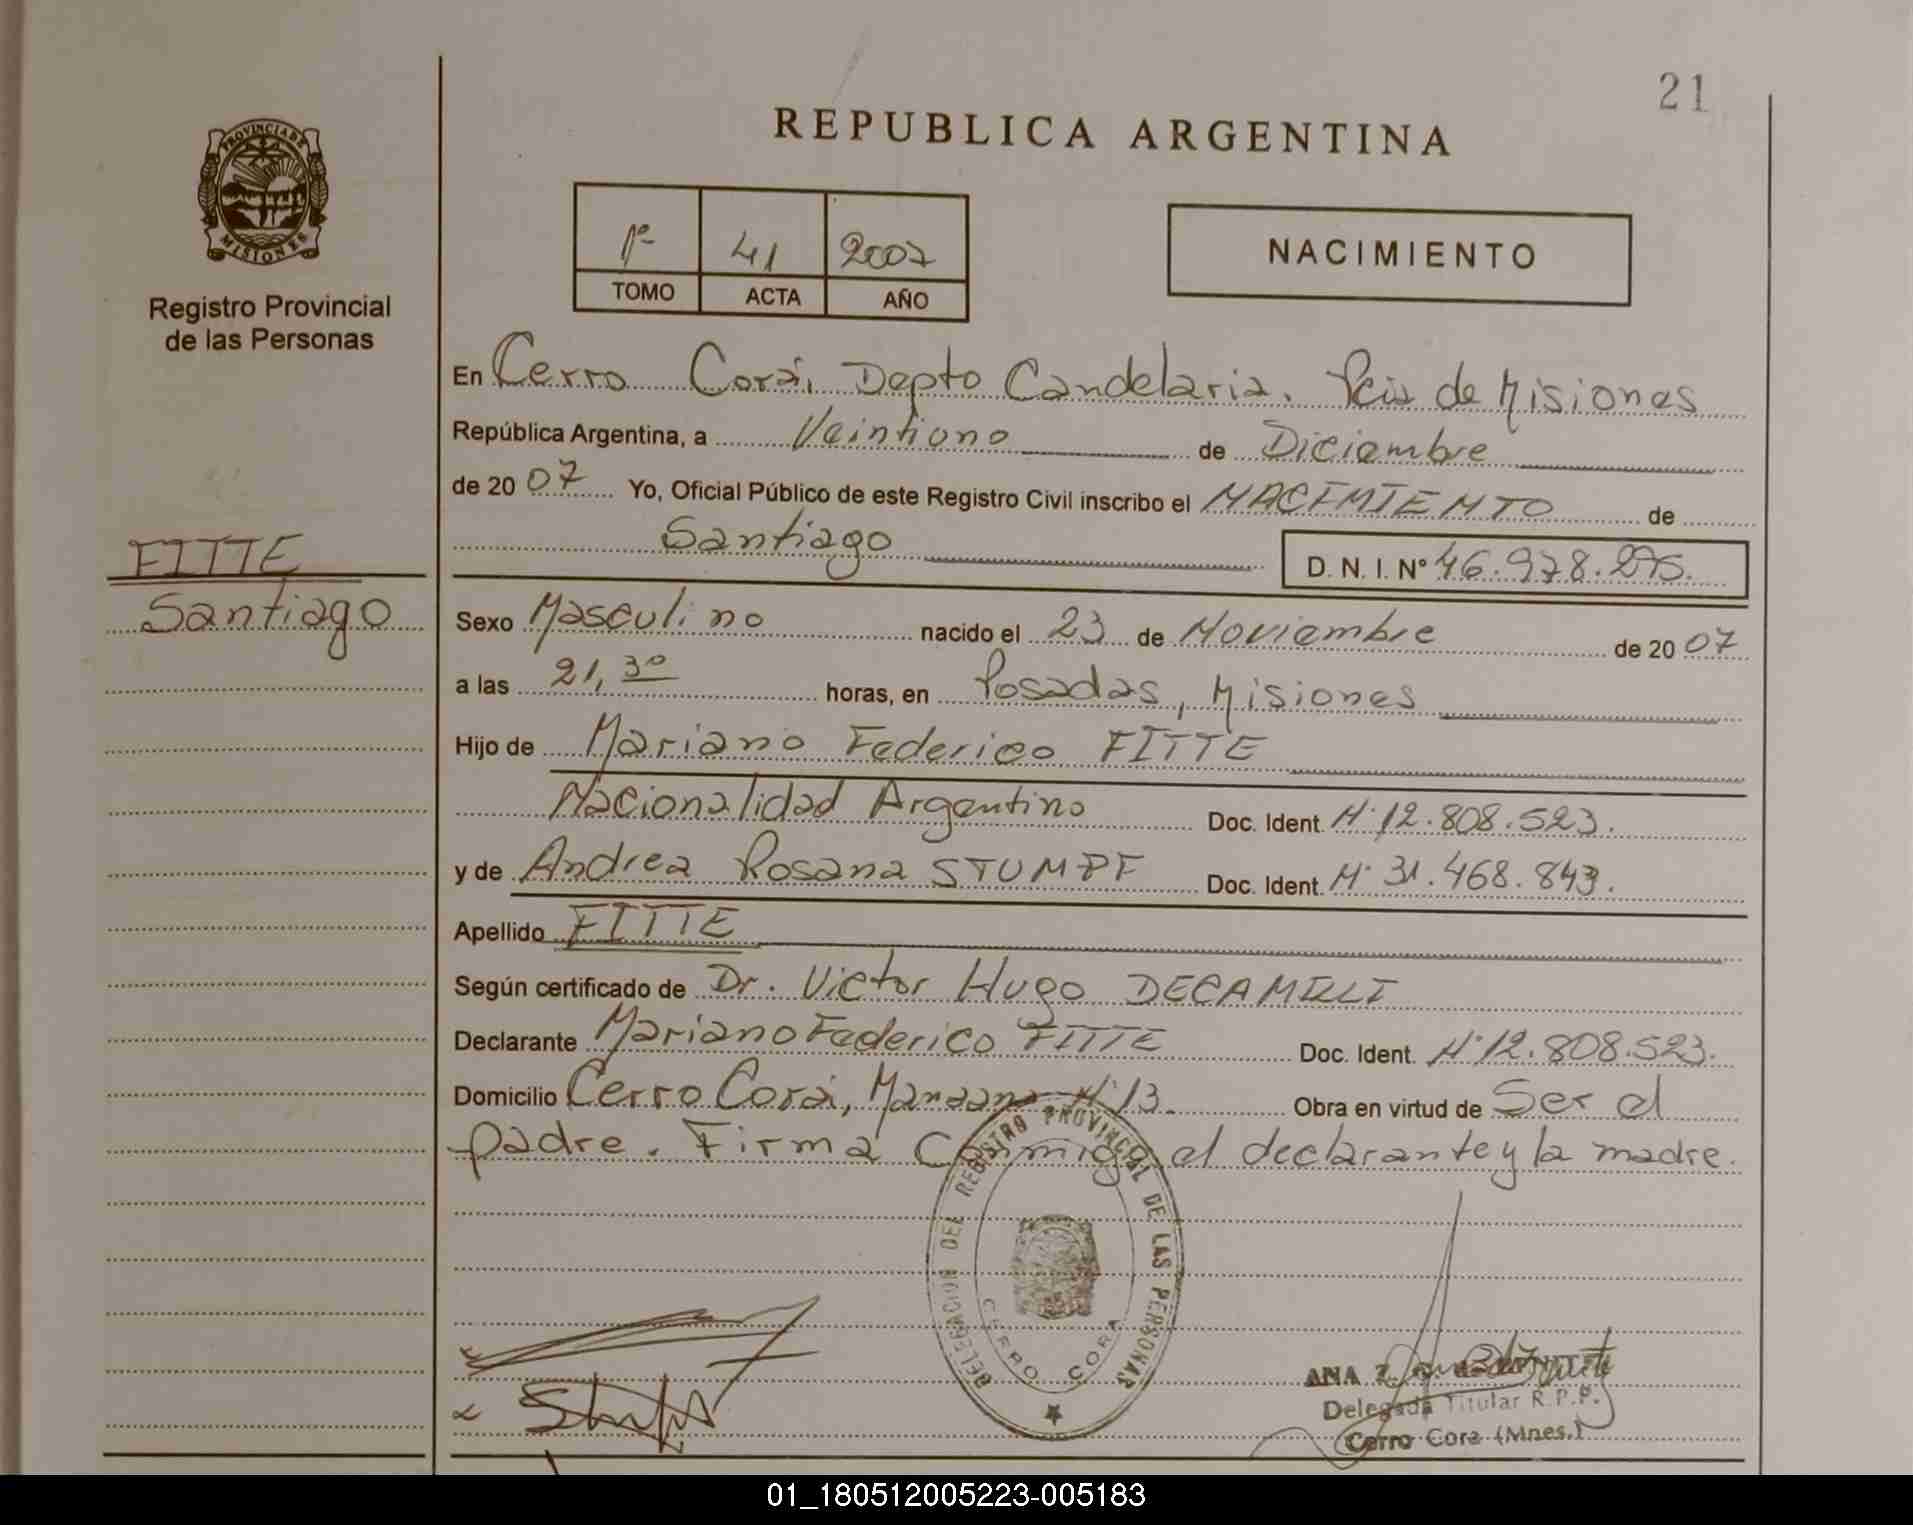 21
REPUBLICA ARGENTINA
PROVINCIA DE
MISIONES
Registro Provincial
de las Personas
1º 41 2007
TOMO ACTA AÑO
NACIMIENTO
En Cerro Corá, Depto Candelaria. Pcia de Misiones
República Argentina, a Veintiuno de Diciembre
de 20 07 Yo, Oficial Público de este Registro Civil inscribo el NACIMIENTO de
Santiago D. N. I. Nº 46.978.295.
FITTE
Santiago
Sexo Masculino nacido el 23 de Noviembre de 20 07
a las 21,30 horas, en Posadas, Misiones
Hijo de Mariano Federico FITTE
Nacionalidad Argentino Doc. Ident. Nº 12.808.523.
y de Andrea Rosana STUMPF Doc. Ident. Nº 31.468.843.
Apellido FITTE
Según certificado de Dr. Victor Hugo DECAMILLI
Declarante Mariano Federico FITTE Doc. Ident. Nº 12.808.523.
Domicilio Cerro Corá, Manzana Nº 13. Obra en virtud de Ser el
padre. Firma Conmigo el declarante y la madre.
DELEGACION DEL REGISTRO PROVINCIAL DE LAS PERSONAS
CERRO CORA
ANA
Delegada Titular R.P.P.
Cerro Cora (Mnes.)
01_180512005223-005183